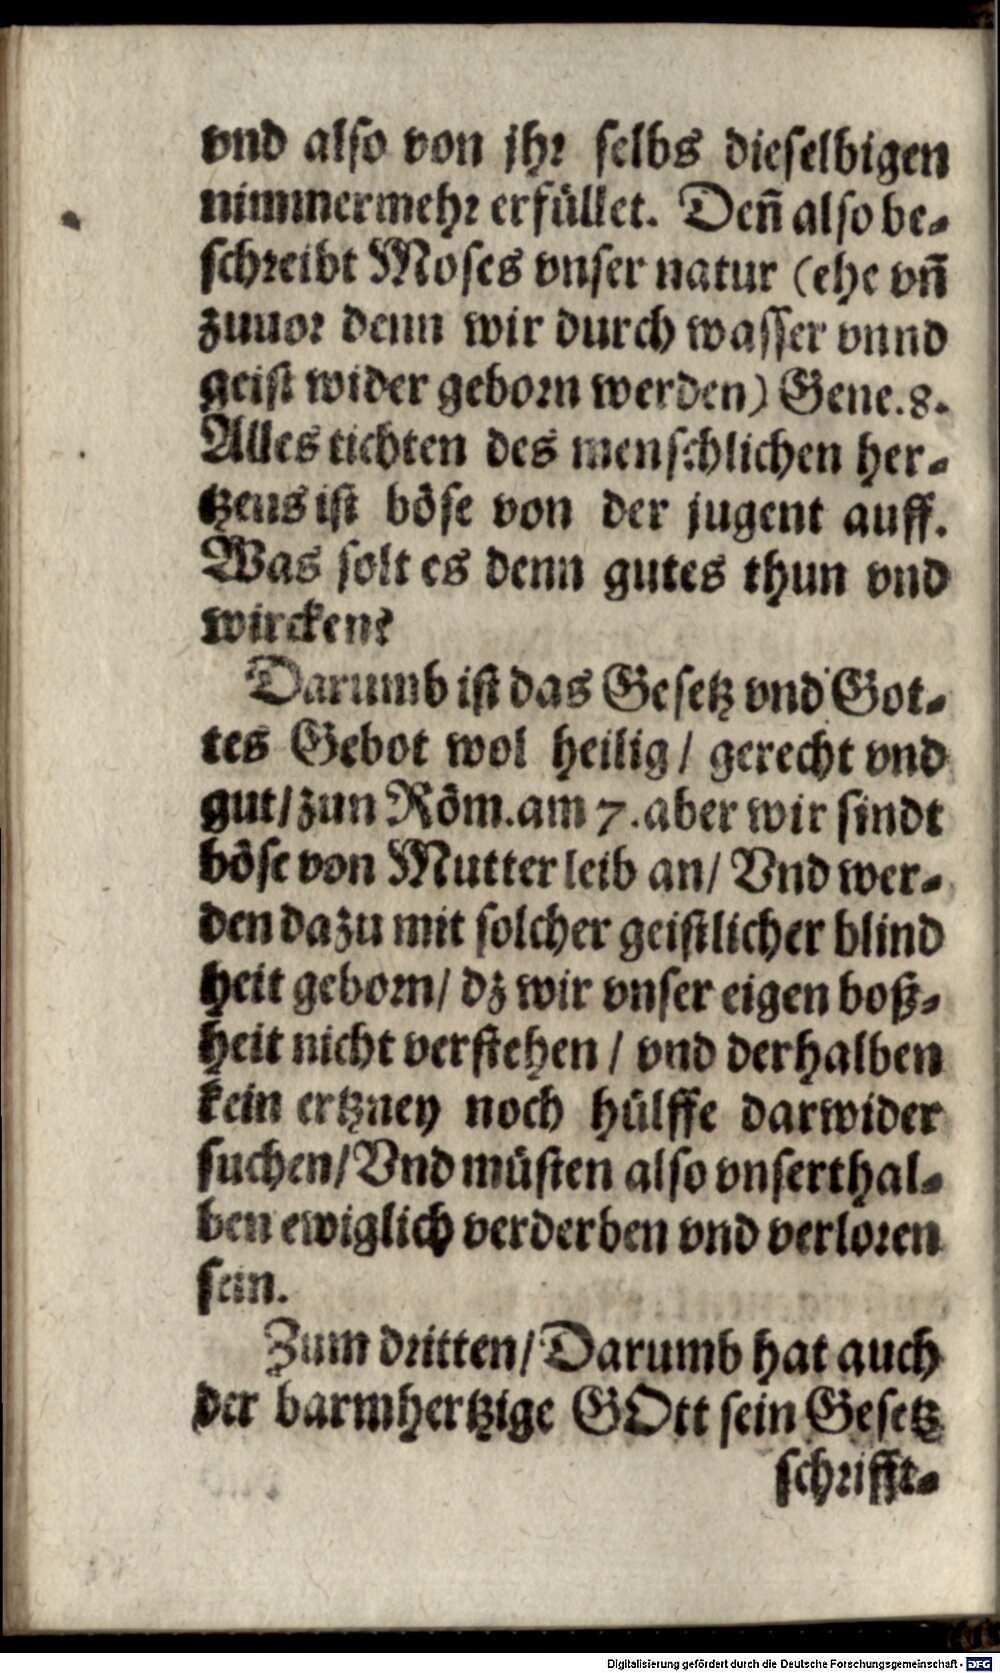 vnd also von jhr selbs dieselbigen
nimmermehr erfüllet. Deñ also be-
schreibt Moses vnser natur (ehe vñ
zuuor denn wir durch wasser vnnd
geist wider geborn werden) Gene. 8.
Alles tichten des menschlichen her-
tzens ist böse von der jugent auff.
Was solt es denn gutes thun vnd
wircken?
Darumb ist das Gesetz vnd Got-
tes Gebot wol heilig / gerecht vnd
gut / zun Röm. am 7. aber wir sindt
böse von Mutter leib an / Vnd wer-
den dazu mit solcher geistlicher blind
heit geborn / dz wir vnser eigen boß-
heit nicht verstehen / vnd derhalben
kein ertzney noch hülffe darwider
suchen / Vnd müsten also vnserthal-
ben ewiglich verderben vnd verloren
sein.
Zum dritten / Darumb hat auch
der barmhertzige GOtt sein Gesetz
schrifft-
Digitalisierung gefördert durch die Deutsche Forschungsgemeinschaft - DFG